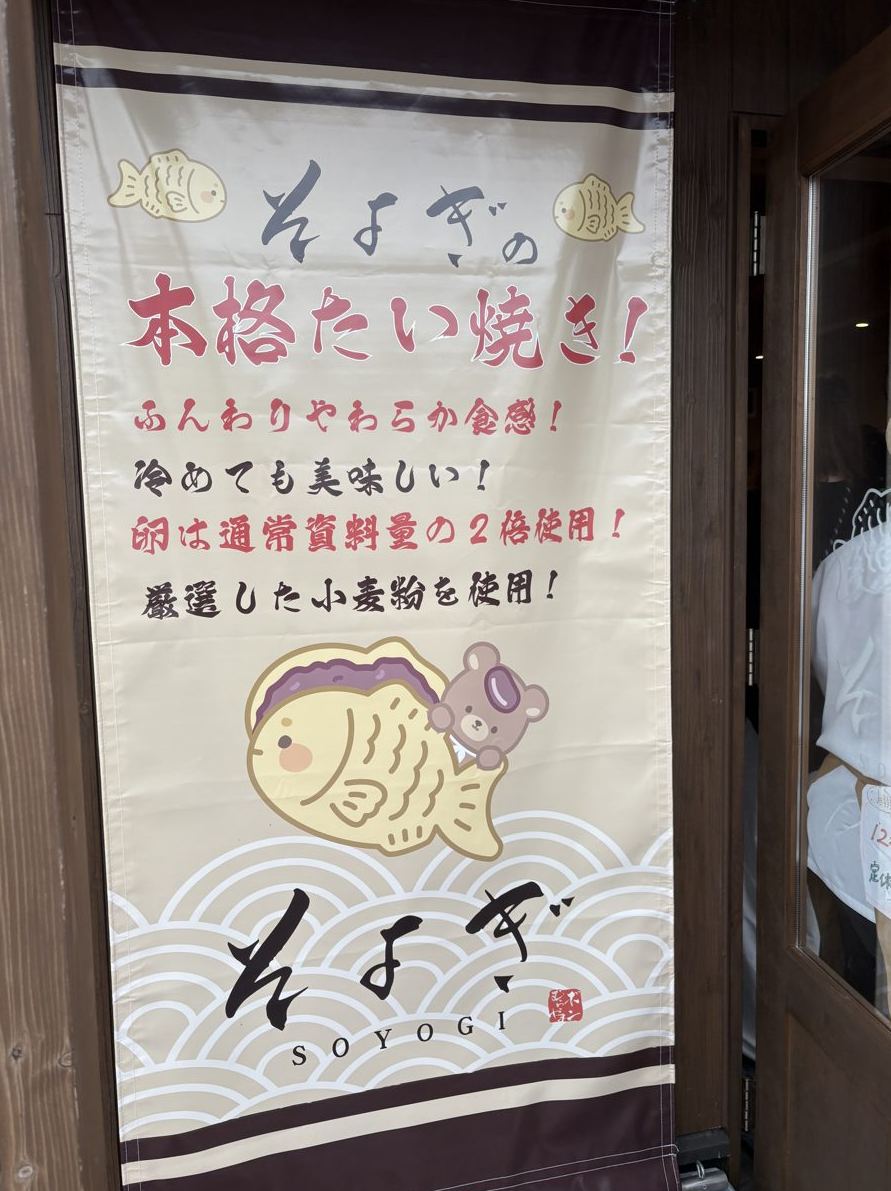 そよぎの
本格たい焼き!
ふんわりやわらか食感!
冷めても美味しい!
卵は通常資料量の2倍使用!
厳選した小麦粉を使用!
そよぎ
SOYOGI